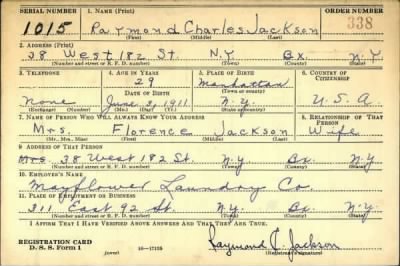 SERIAL NUMBER 1. NAME (Print) ORDER NUMBER
1015 Raymond Charles Jackson 338
(First) (Middle) (Last)
2. ADDRESS (Print)
38 West 182 St. N.Y Bx. N.Y
(Number and street or R. F. D. number) (Town) (County) (State)
3. TELEPHONE 4. AGE IN YEARS 5. PLACE OF BIRTH 6. COUNTRY OF CITIZENSHIP
29 Manhattan
DATE OF BIRTH (Town or county)
None June 3, 1911. N.Y. U.S.A
(Exchange) (Number) (Mo.) (Day) (Yr.) (State or country)
7. NAME OF PERSON WHO WILL ALWAYS KNOW YOUR ADDRESS 8. RELATIONSHIP OF THAT PERSON
Mrs. Florence Jackson Wife
(Mr., Mrs., Miss) (First) (Middle) (Last)
9. ADDRESS OF THAT PERSON
Mrs. 38 West 182 St. N.Y. Bx. N.Y
(Number and street or R. F. D. number) (Town) (County) (State)
10. EMPLOYER'S NAME
Mayflower Laundry Co.
11. PLACE OF EMPLOYMENT OR BUSINESS
311 East 92 St. N.Y. N.Y
(Number and street or R. F. D. number) (Town) (County) (State)
I AFFIRM THAT I HAVE VERIFIED ABOVE ANSWERS AND THAT THEY ARE TRUE.
REGISTRATION CARD
D. S. S. Form 1 (over) 16—17105 Raymond C. Jackson
(Registrant's signature)